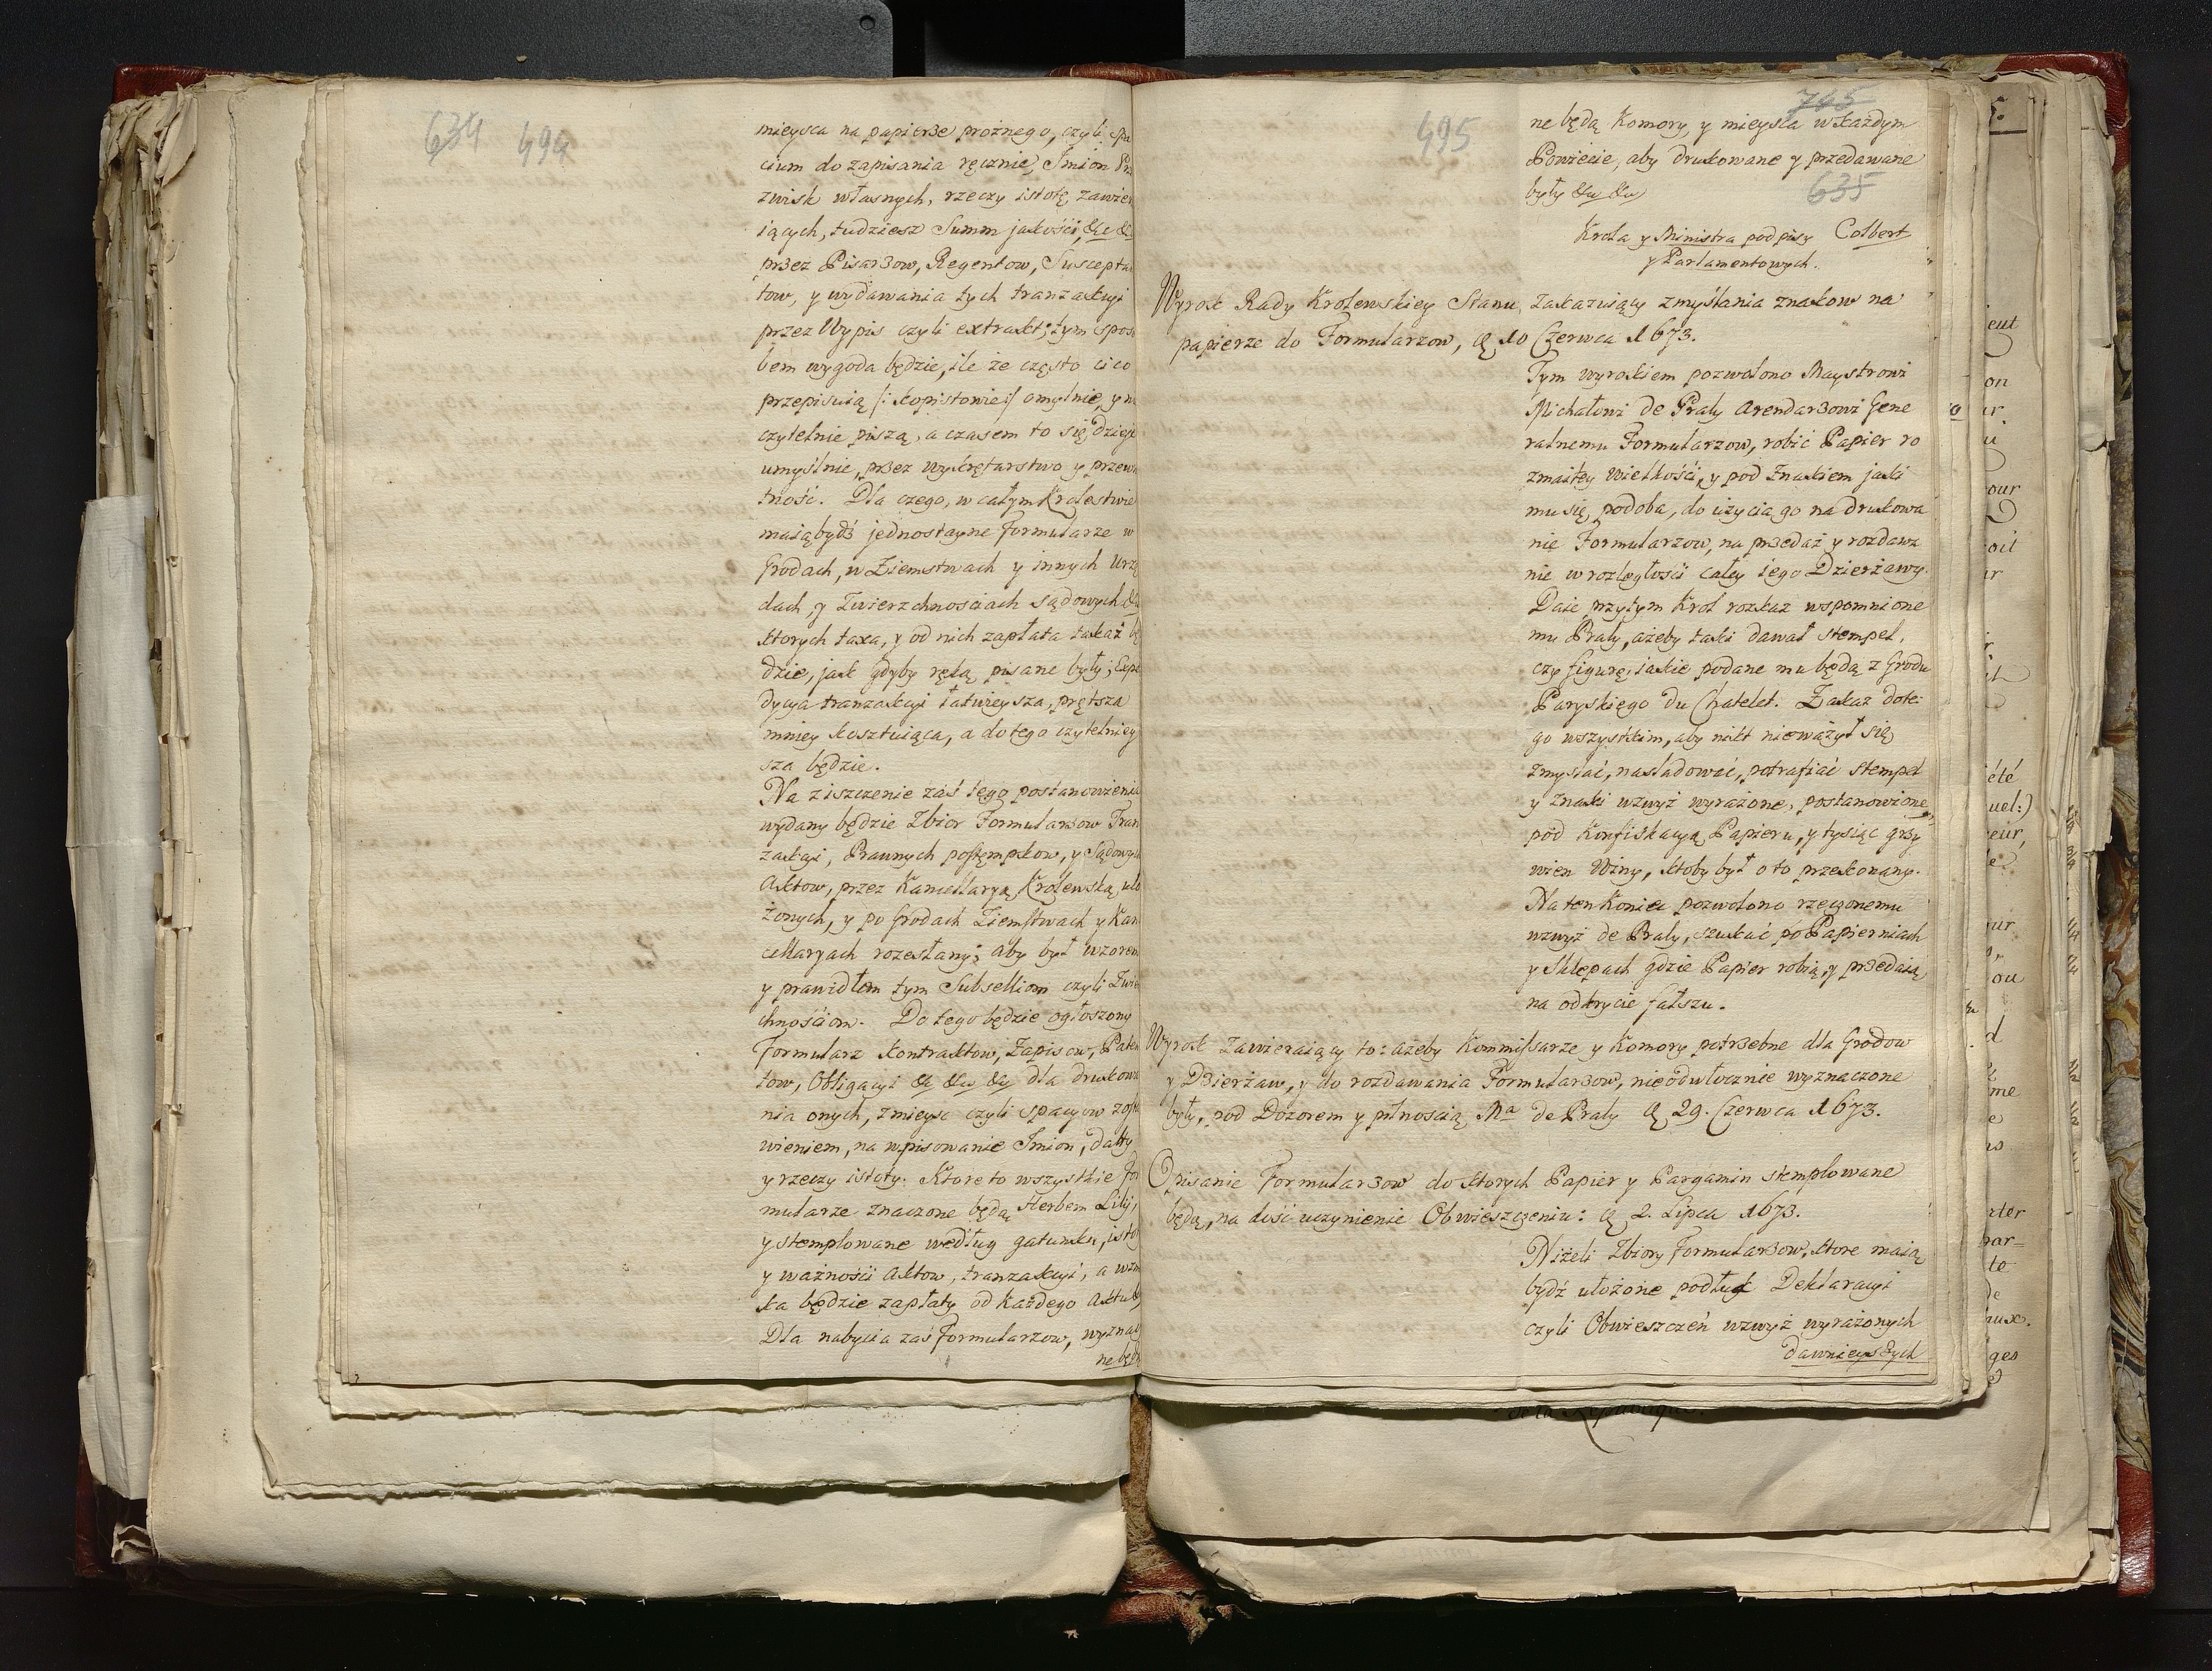 634 494
mieysca na papierze prożnego, czyli spa
cium do zapisania ręcznie, Jmion Prz
zwisk własnych, rzeczy istotę zawier
iących, tudziesz Summ jakości, &c &c
przez Pisarzow, Regentow, Suscepta
tow, y wydawania tych tranzakcyi
przez Wypis czyli extrakt; tym sposo
bem wygoda będzie, ile że często ci co
przepisuią /: kopistowie :/ omylnie, y n
czytelnie piszą, a czasem to się dzieie
umyślnie, przez wykrętarstwo y przew
tność. Dla czego, w całym Krolestwie
maią bydź jednostayne formularze w
Grodach, w Ziemstwach y innych Urzę
dach, y Zwierzchnościach sądowych &c
ktorych taxa, y od nich zapłata takaż bę
dzie, jak gdyby ręką pisane były; Expe
dycya tranzakcyi łatwieysza, prętsza
mniey kosztuiąca, a do tego czytelniey
sza będzie.
Na ziszczenie zaś tego postanowienia
wydany będzie Zbior Formularzow Tran
zakcyi, Prawnych postęmpkow, y Sądowych
Aktow, przez Kancellaryą Krolewską uło
żonych, y po Grodach Ziemstwach y Kan
cellaryach rozesłany; aby był wzorem
y prawidłem tym Subselliom czyli Zwie
chnościom. Do tego będzie ogłoszony
Formularz kontraktow, Zapisow, Paten
tow, Obligacyi &c &c &c dla drukowa
nia onych, z mieysc czyli spacyow zosta
wieniem, na wpisowanie Jmion, datty
y rzeczy istoty. Ktore to wszystkie for
mularze znaczone będą Herbem Lilij,
y stemplowane według gatunku, isto
y ważności aktow, tranzakcyi, a wzm
ka będzie zapłaty od każdego aktu &c
Dla nabycia zaś formularzow, wyznac
ne będą
495
705
ne będą Komory, y mieysca w każdym
Powiecie, aby drukowane y przedawane
były &c &c
635
Krola y Ministra podpisy Colbert
y Parlamentowych.
Wyrok Rady Krolewskiey Stanu, zakazuiący zmyślania znakow na
papierze do Formularzow, 10 Czerwca 1673.
Tym wyrokiem pozwolono Maystrowi
Michałowi de Praly Arendarzowi Gene
ralnemu Formularzow, robić Papier ro
zmaitey wielkości, y pod Znakiem jaki
mu się podoba, do użycia go na drukowa
nie Formularzow, na przedaż y rozdawa
nie w rozległości całey iego Dzierżawy.
Daie przytym Krol rozkaz wspomnione
mu Praly, ażeby taki dawał stempel,
czy figurę, iakie podane mu będą z Grodu
Paryskiego du Chatelet. Zakaz dote:
go wszystkim, aby nikt nieważył się
zmyślać, nasladować, potrafiać stempel
y znaki wzwyż wyrażone, postanowione,
pod Konfiskacyą Papieru, y tysiąc grzy
wien Winy, ktoby był o to przekonany.
Na ten Koniec pozwolono rzeczonemu
wzwyż de Praly, szukać po Papierniach
y Sklepach gdzie Papier robią, y przedaią,
na odkrycie fałszu.
Wyrok Zawieraiący to: ażeby Kommissarze y Komory potrzebne dla Grodow
y Dzierżaw, y do rozdawania Formularzow, nieodwłocznie wyznaczone
były, pod Dozorem y pilnością Ma de Praly 29. Czerwca 1673.
Opisanie Formularzow do ktorych Papier y Pargamin stemplowane
będą, na dość uczynienie Obwieszczeniu: 2. Lipca 1673.
Niżeli Zbiory Formularzow, ktore maią
bydź ułożone podług Deklaracyi
czyli Obwieszczeń wzwyż wyrażonych
dawnieyszych